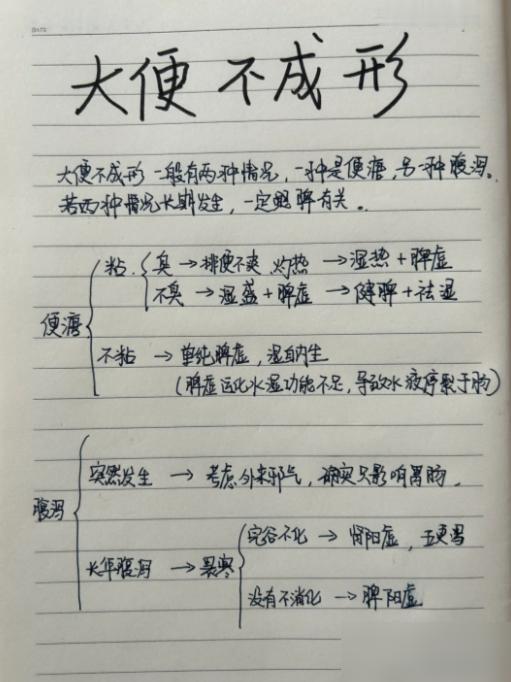 大便不成形
大便不成形一般有两种情况，一种是便溏，另一种腹泻。
若两种情况长期发生，一定跟脾有关。
粘 臭→排便不爽 灼热→湿热+脾虚
不臭→湿盛+脾虚→健脾+祛湿
便溏
不粘→单纯脾虚，湿自内生
（脾虚运化水湿功能不足，导致水液停聚于肠）
突然发生→考虑外来邪气，确实只影响胃肠。
腹泻
完谷不化→肾阳虚，五更泻
长年腹泻→是寒
没有不消化→脾阳虚